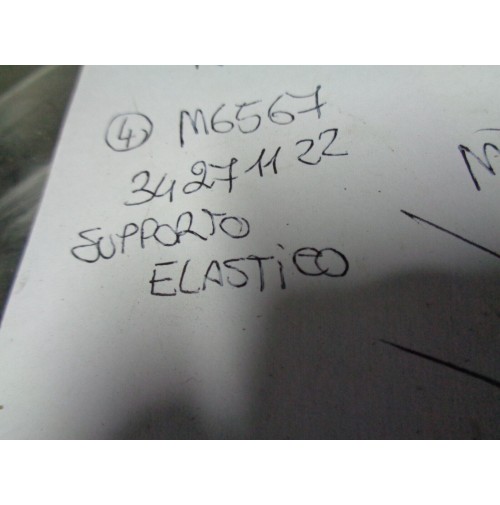 ④ M6567
34271122
SUPPORTO
ELASTICO